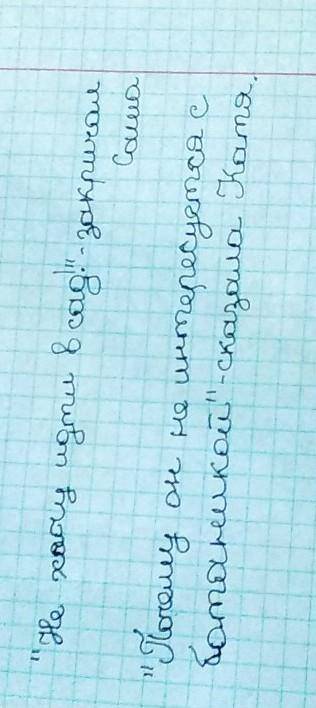 "Не хочу идти в сад!"-закричал
Саша
"Почему он не интересуется с
ботаникой"-сказала Катя.